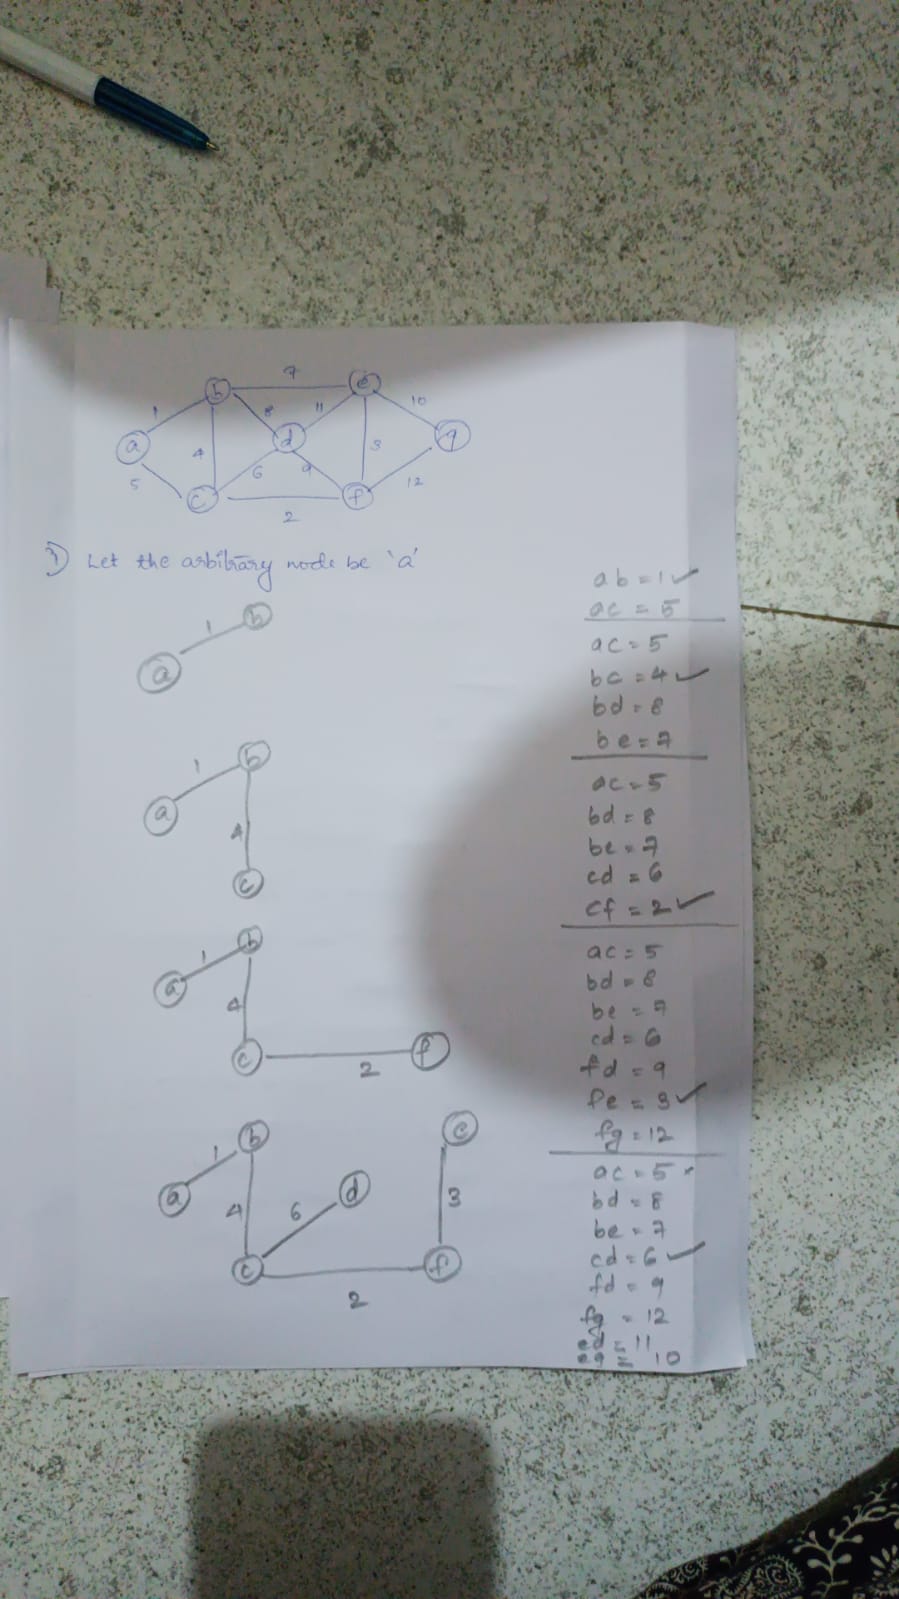 7
b e
1 8 11 10
a d g
4 3
5 6 9 12
c f
2
3) Let the arbitrary node be 'a'
1 b
a
1 b
a
4
c
1 b
a
4
c f
2
b e
1
a d
4 6 3
c f
2
ab = 1 ✓
ac = 5
ac = 5
bc = 4 ✓
bd = 8
be = 7
ac = 5
bd = 8
be = 7
cd = 6
cf = 2 ✓
ac = 5
bd = 8
be = 7
cd = 6
fd = 9
fe = 3 ✓
fg = 12
ac = 5 x
bd = 8
be = 7
cd = 6 ✓
fd = 9
fg = 12
ed = 11
eg = 10